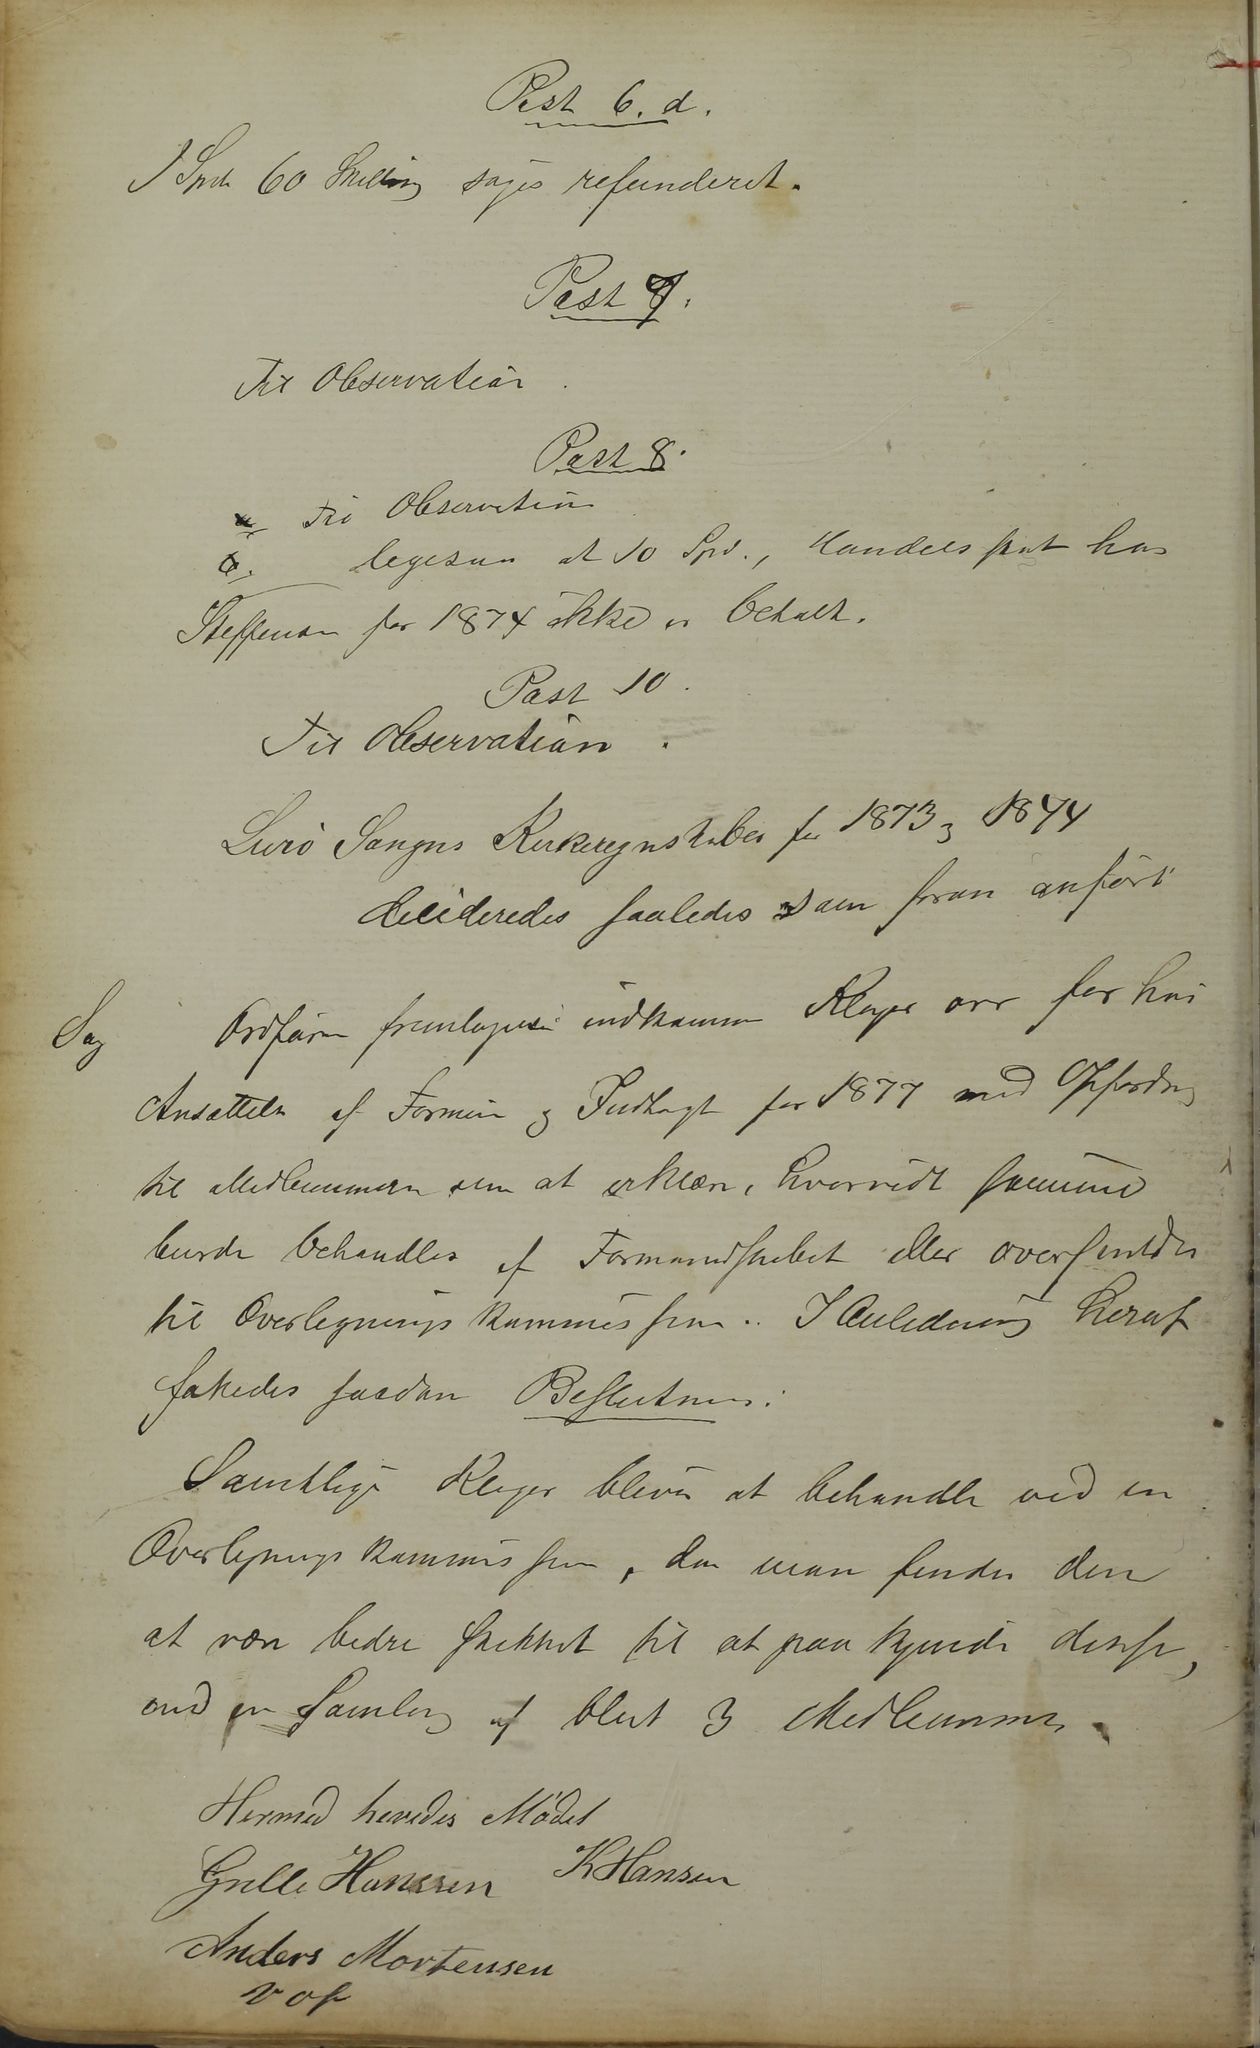 Post 6. d.
1 Spd 60 Skilling søges refunderet.
Post 9.
Til Observation.
Post 8.
a, Til Observation
b. ligesaa at 10 Spd., Handelsskat hos
Steffensen for 1874 ikke er betalt.
Post 10.
Til Observation.
Lurö Sogns Kirkeregnskaber for 1873 og 1874
decideredes saaledes som foran anfört
Sag Ordføren fremlagde indkomne Klager over for høi
Ansættelse af Formue og Indtægt for 1877 med Opfordring
til Medlemmerne om at erklære, hvorvidt samme
burde behandles af Formandskabet eller oversendes
til Overligningskommissionen. I Anledning heraf
fattedes saadan Beslutning:
Samtlige Klager bliver at behandle ved en
Overligningskommission, da man finder den
at være bedre skikket til at paakjende disse,
end en Samling af blot 3 Medlemmer.
Hermed hevedes Mödet
Grelle Hanssen K Hansen
Anders Mortensen